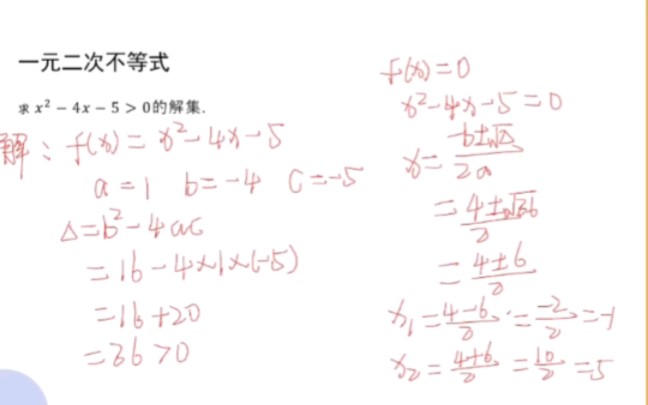 一元二次不等式
求 x² − 4x − 5 > 0的解集.
解：f(x) = x² − 4x − 5
a = 1 b = −4 c = −5
Δ = b² − 4ac
= 16 − 4×1×(−5)
= 16 + 20
= 36 > 0
f(x) = 0
x² − 4x − 5 = 0
x = (−b±√Δ)/(2a)
= (4±√36)/2
= (4±6)/2
x₁ = (4−6)/2 = (−2)/2 = −1
x₂ = (4+6)/2 = 10/2 = 5